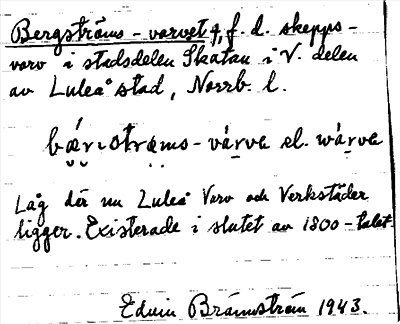 Bergströms-varvet, f.d. skepps-
varv i stadsdelen Skatan i V. delen
av Luleå stad, Norrb. l.
värva el. wärva
Låg där nu Luleå Varv och Verkstäder
ligger. Existerade i slutet av 1800-talet.
Edvin Brännström 1943.